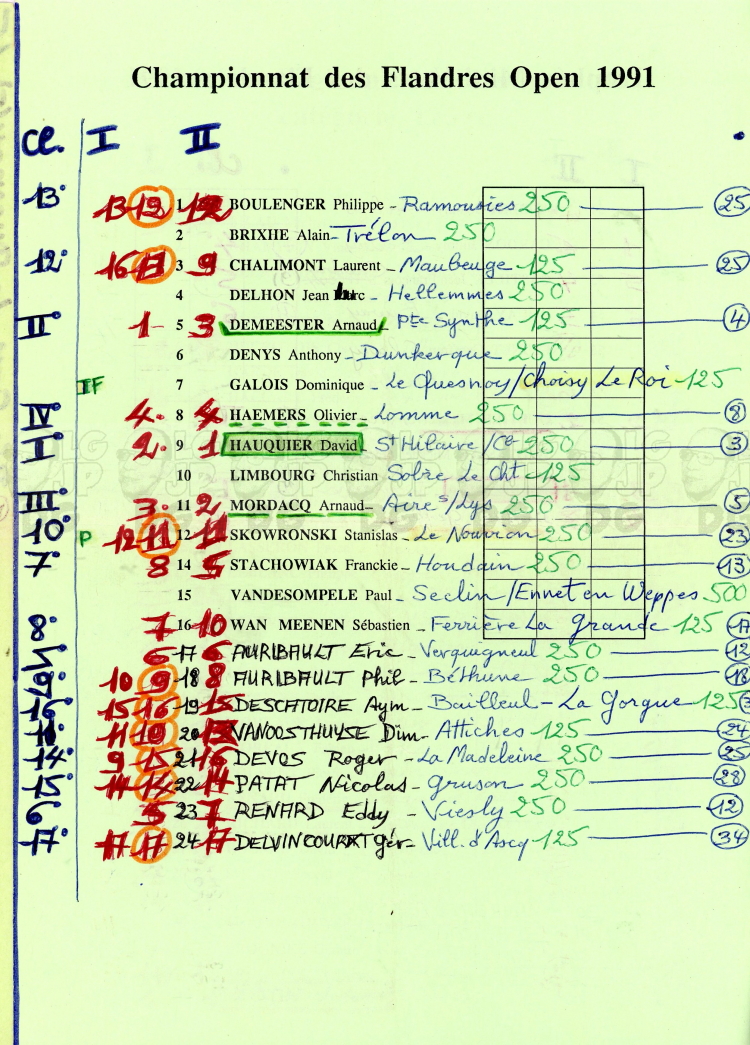 Championnat des Flandres Open 1991
Cl. I II
13° 13 12 1 12 BOULENGER Philippe - Ramousies 250 25
2 BRIXHE Alain - Trélon 250
12° 16 3 9 CHALIMONT Laurent - Maubeuge 125 25
4 DELHON Jean - Hellemmes 250
II° 1 - 5 3 DEMEESTER Arnaud Pte Synthe 125 4
6 DENYS Anthony - Dunkerque 250
IF 7 GALOIS Dominique - Le Quesnoy/Choisy Le Roi 125
IV° 4. 8 4 HAEMERS Olivier - Lomme 250 8
I° 2. 9 1 HAUQUIER David St Hilaire/Ce 250 3
10 LIMBOURG Christian Solre Le Cht 125
III° 3. 11 2 MORDACQ Arnaud - Aire s/Lys 250 5
10° P 12 11 12 11 SKOWRONSKI Stanislas - Le Nouvion 250 23
7° 8 14 5 STACHOWIAK Franckie - Houdain 250 13
15 VANDESOMPELE Paul - Seclin/Ennet en Weppes 500
8° 7 16 10 WAN MEENEN Sébastien - Ferrière La Grande 125 17
6 17 6 AURIBAULT Eric - Verquigneul 250 12
9° 10 9 18 8 AURIBAULT Phil - Béthune 250 18
16° 15 16 19 15 DESCATOIRE Aym - Bailleul - La Gorgue 125
11° 11 10 20 13 VANOOSTHUYSE Dim - Attiches 125 24
14° 9 15 21 16 DEVOS Roger - La Madeleine 250 25
15° 14 14 22 14 PATAT Nicolas - Gruson 250 28
6° 5 23 7 RENARD Eddy - Viesly 250 12
17° 17 17 24 17 DELVINCOURT Gér - Vill. d'Ascq 125 34